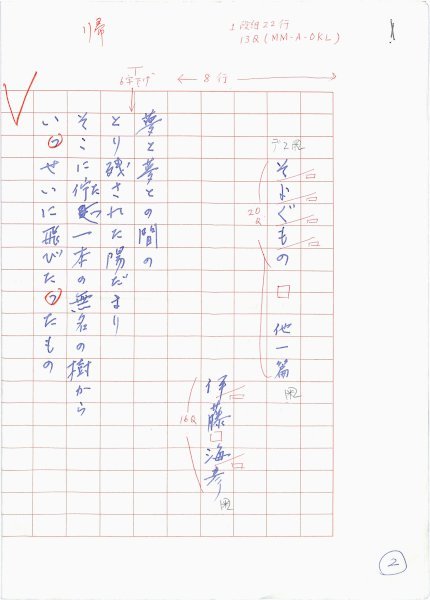 1段組22行
13Q(MM-A-OKL)
8行
6字下げ
そよぐもの□他一篇
20Q
伊藤□海彦
16Q
夢と夢との間の
とり残された陽だまり
そこに佇た一本の無名の樹から
いっせいに飛びたったもの
2